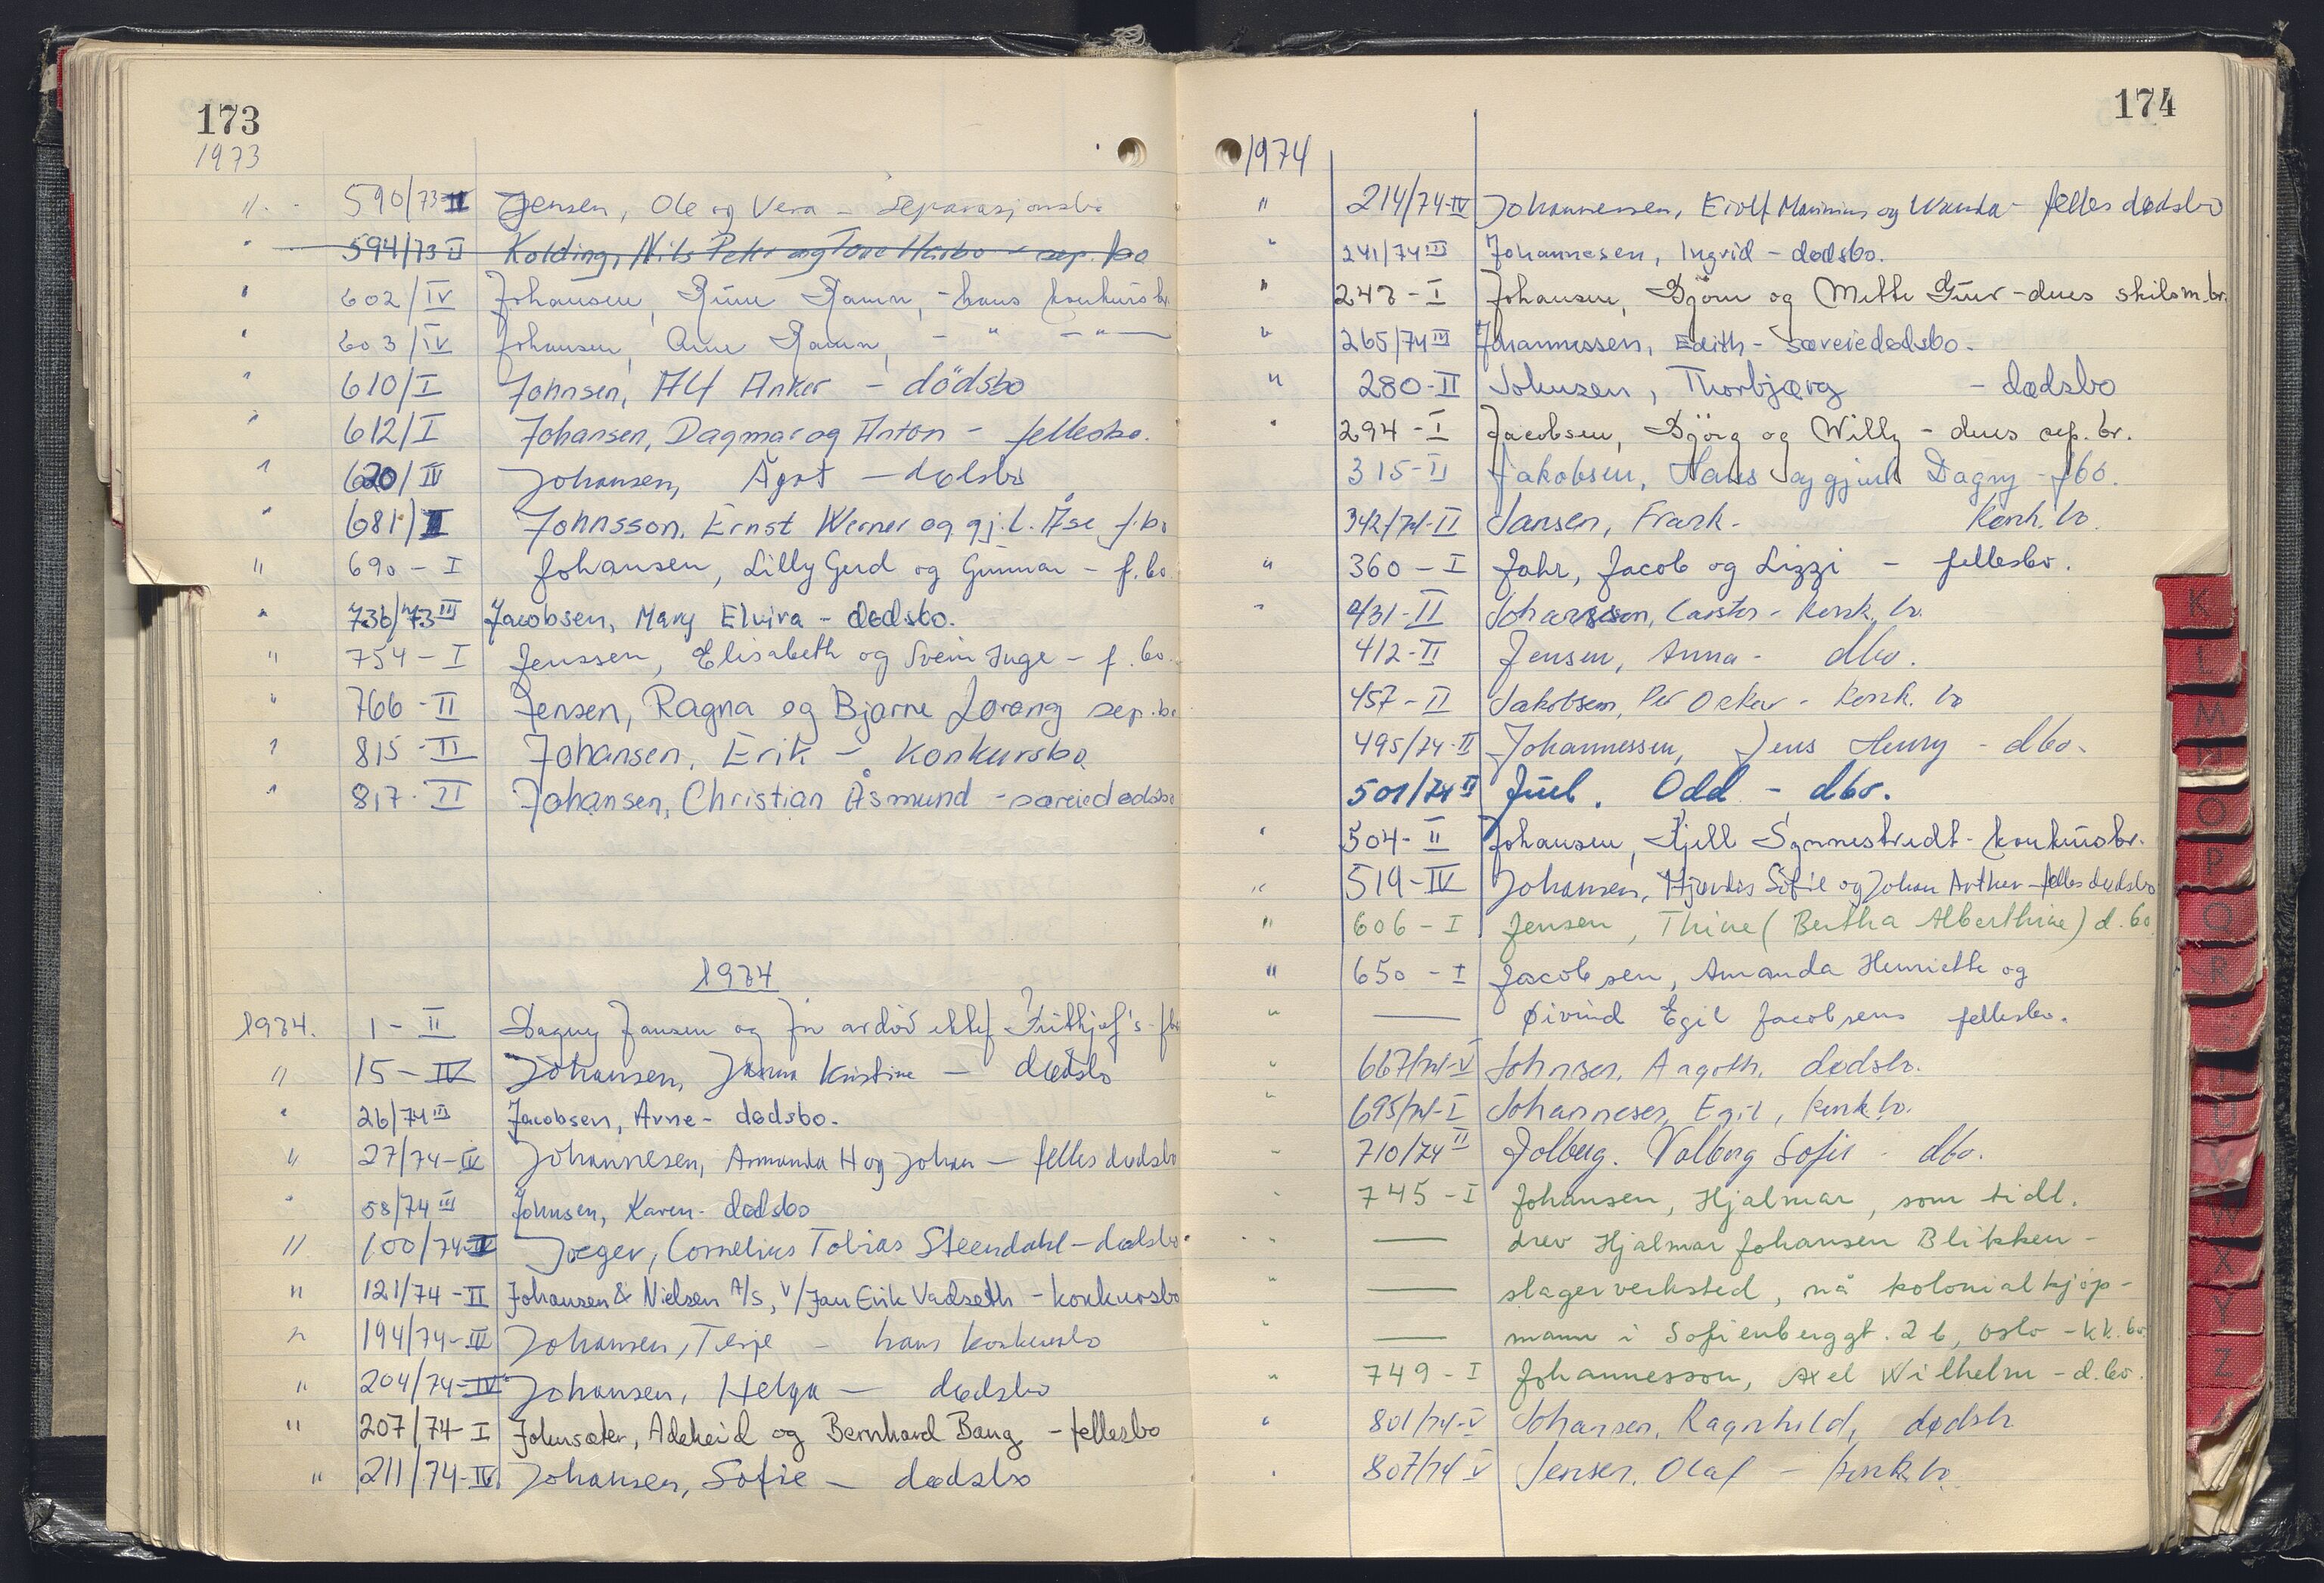 173
1973
" 590/73 II Jensen, Ole og Vera - Separasjonsbo
" 594/73 II Kolding, Nils Peter og Tove Harbo - sep. bo
" 602/IV Johansen, Rune Ramm, - hans konkursbo
" 603/IV Johansen, Arne Ramm, - " - " -
" 610/I Johnsen, Alf Anker - dödsbo
" 612/I Johansen, Dagmar og Anton - fellesbo.
" 620/IV Johansen, Ågot - dødsbo
" 681/II Johnsson, Ernst Werner og gj.l. Åse f.bo
" 690 - I Johansen, Lilly Gerd og Gunnar - f.bo
" 736/73 III Jacobsen, Mary Elvira - dødsbo.
" 754 - I Jenssen, Elisabeth og Svein Inge - f.bo.
" 766 - II Jensen, Ragna og Bjarne Lorang sep.bo
" 815 - II Johansen, Erik - Konkursbo
" 817 - II Johansen, Christian Åsmund - særeiedødsbo
1974
1974. 1 - II Dagny Jansen og før avdöd ektef. Frithjof's - fbo
" 15 - IV Johansen, Janna Kristine - dødsbo
" 26/74 III Jacobsen, Arne - dødsbo.
" 27/74 - IV Johannesen, Ammanda H og Johan - felles dødsbo
" 58/74 III Johnsen, Karen - dødsbo
" 100/74 - IV Jæger, Cornelius Tobias Steendahl - dødsbo
" 121/74 - II Johansen & Nielsen A/S, v/Jan Erik Vadseth - konkursbo
" 194/74 - IV Johansen, Terje - hans konkursbo
" 204/74 - IV Johansen, Helga - dødsbo
" 207/74 - I Johnsæter, Adeheid og Bernhard Bang - fellesbo
" 211/74 - IV Johansen, Sofie - dødsbo
174
1974
" 214/74 - IV Johannessen, Eiolf Marinius og Wanda - felles dødsbo
" 241/74 III Johannesen, Ingrid - dødsbo.
" 247 - I Johansen, Björn og Mette Guer - deres skilsm.bo
" 265/74 III Johannessen, Edith - særeiedødsbo.
" 280 - II Johnsen, Thorbjørg - dødsbo
" 294 - I Jacobsen, Björg og Willy - deres sep. bo.
315 - II Jakobsen, Hans og gjenl Dagny - fbo.
342/74 - II Jansen, Frank - Konk. bo
" 360 - I Jahr, Jacob og Lizzi - fellesbo.
" 431 - II Johanssen, Carsten - Konk. bo.
412 - II Jensen, Anna - dbo.
457 - II Jakobsen, Per Oskar - Konk. bo
495/74 - II Johannessen, Jens Henry - dbo.
501/74 II Juel. Odd - dbo.
" 504 - II Johansen, Kjell Synnestvedt - konkursbo.
" 519 - IV Johansen, Hjørdis Sofie og Johan Arthur - felles dødsbo
" 606 - I Jensen, Thine (Bertha Alberthine) d.bo
" 650 - I Jacobsen, Amanda Henriette og
" — Øivind Egil Jacobsens fellesbo.
" 667/74 - V Johnsen, Argoth, dødsbo.
" 695/74 - I Johannesen, Egil, konk.bo.
" 710/74 II Jolberg. Valborg Sofie - dbo.
" 745 - I Johansen, Hjalmar, som tidl.
" — drev Hjalmar Johansen Blikken-
" — slagerverksted, nå kolonialkjøp-
" — mann i Sofienberggt. 26, Oslo - kk.bo.
" 749 - I Johannesson, Axel Wilhelm - d.bo.
" 801/74 - V Johansen, Ragnhild, dødsbo
" 807/74 V Jensen, Olaf - konk.bo.
K
L
M
N
O
P
Q
R
T
U
V
W
X
Y
Z